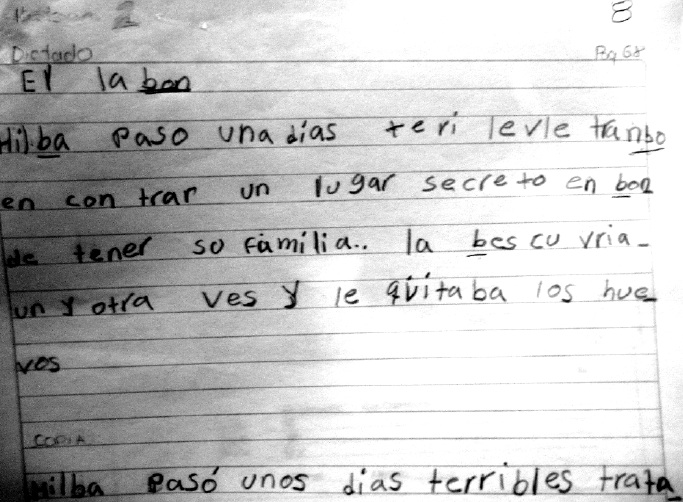 2
8
Dictado
Pag 68
El la bon
Hilba paso una dias teri levle tranbo
en con trar un lugar secre to en bon
de tener so familia.. la bes cu vria-
un y otra ves y le quitaba los hue
vos
COPIA
Milba pasó unos dias terribles trata